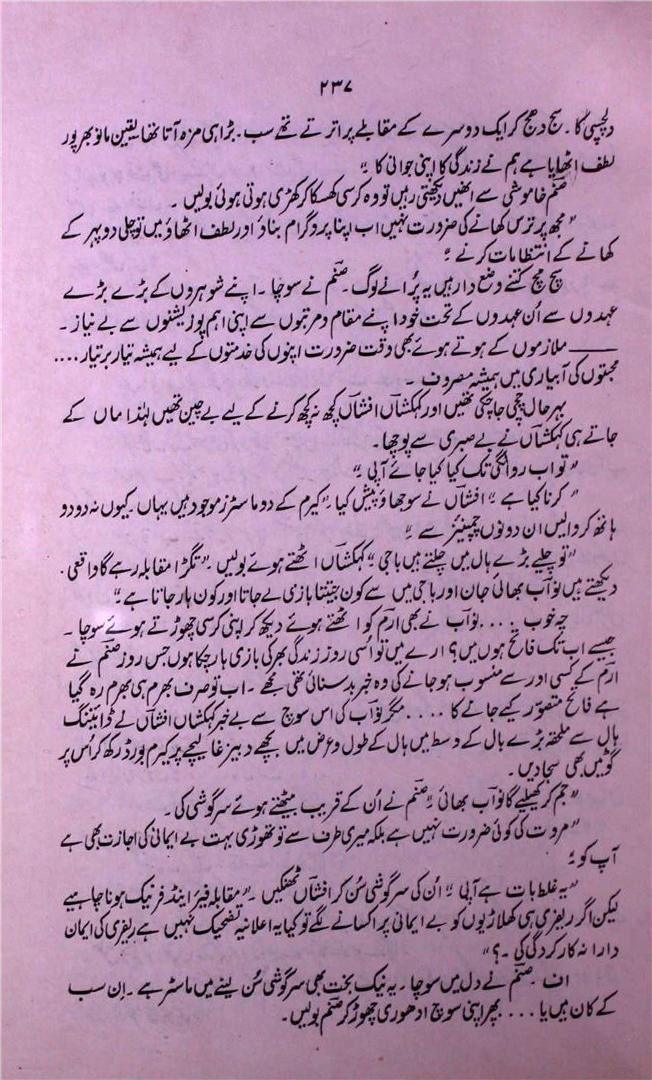 ۲۳۷
دلچسپی کا۔ سج دھج کر ایک دوسرے کے مقابلے پر اترتے تھے سب۔ بڑا ہی مزہ آتا تھا یقین مانو بھرپور
لطف اٹھایا ہے ہم نے زندگی کا اپنی جوانی کا"
صنم خاموشی سے انھیں دیکھتی رہیں تو وہ کرسی کھسکا کر کھڑی ہوتی ہوئی بولیں۔
"مجھ پر ترس کھانے کی ضرورت نہیں اب اپنا پروگرام بناؤ اور لطف اٹھاؤ میں تو چلی دوپہر کے
کھانے کے انتظامات کرنے"
سچ مچ کتنے وضع دار ہیں یہ پرانے لوگ۔ صنم نے سوچا۔ اپنے شوہروں کے بڑے بڑے
عہدوں سے اُن عہدوں کے تحت خود اپنے مقام و مرتبوں سے اپنی اہم پوزیشنوں سے بے نیاز۔
ــــــ ملازموں کے ہوتے ہوئے بھی وقت ضرورت اپنوں کی خدمتوں کے لیے ہمیشہ تیار برتیار....
محبتوں کی آبیاری میں ہمیشہ مصروف۔
بہرحال چچی جا چکی تھیں اور کہکشاں افشاں کچھ نہ کچھ کرنے کے لیے بے چین تھیں لہٰذا ماں کے
جاتے ہی کہکشاں نے بے صبری سے پوچھا۔
"تو اب روانگی تک کیا کیا جائے آپی"
"کرنا کیا ہے" افشاں نے سوجھاؤ پیش کیا "کیرم کے دو ماسٹرز موجود ہیں یہاں۔ کیوں نہ دو دو
ہاتھ کروالیں ان دونوں چمپینز سے"
"تو چلیے بڑے ہال میں چلتے ہیں باجی" کہکشاں اٹھتے ہوئے بولیں۔ "تگڑا مقابلہ رہے گا واقعی۔
دیکھتے ہیں نواب بھائی جان اور باجی میں سے کون جیتتا بازی لے جاتا اور کون ہار جاتا ہے"
چہ خوب.... نواب نے بھی ارم کو اٹھتے ہوئے دیکھ کر اپنی کرسی چھوڑتے ہوئے سوچا۔
جیسے اب تک فاتح ہوں میں؟ ارے میں تو اُسی روز زندگی بھر کی بازی ہار چکا ہوں جس روز صنم نے
ارم کے کسی اور سے منسوب ہوجانے کی وہ خبر بد سنائی تھی مجھے۔ اب تو صرف بھرم ہی بھرم رہ گیا
ہے فاتح متصور کیے جانے کا.... مگر نواب کی اس سوچ سے بے خبر کہکشاں افشاں نے ڈرائننگ
ہال سے ملحقہ بڑے ہال کے وسط میں ہال کے طول و عرض میں بچھے دبیز غالیچے پر کیرم بورڈ رکھ کر اُس پر
گوٹیں بھی سجادیں۔
"جم کر کھیلیے گا نواب بھائی" صنم نے اُن کے قریب بیٹھتے ہوئے سرگوشی کی۔
"مروت کی کوئی ضرورت نہیں ہے بلکہ میری طرف سے تو تھوڑی بہت بے ایمانی کی اجازت بھی ہے
آپ کو"
"یہ غلط بات ہے آپی" اُن کی سرگوشی سُن کر افشاں ٹھنکیں۔ "مقابلہ فیئر اینڈ فرینک ہونا چاہیے
لیکن اگر ریفری ہی کھلاڑیوں کو بے ایمانی پر اکسانے لگے تو کیا یہ اعلانیہ تضحیک نہیں ہے ریفری کی ایمان
دارانہ کارکردگی کی۔؟"
اف۔ صنم نے دل میں سوچا۔ یہ نیک بخت بھی سرگوشی سُن لینے میں ماسٹر ہے۔ اِن سب
کے کان ہیں یا.... پھر اپنی سوچ ادھوری چھوڑ کر صنم بولیں۔